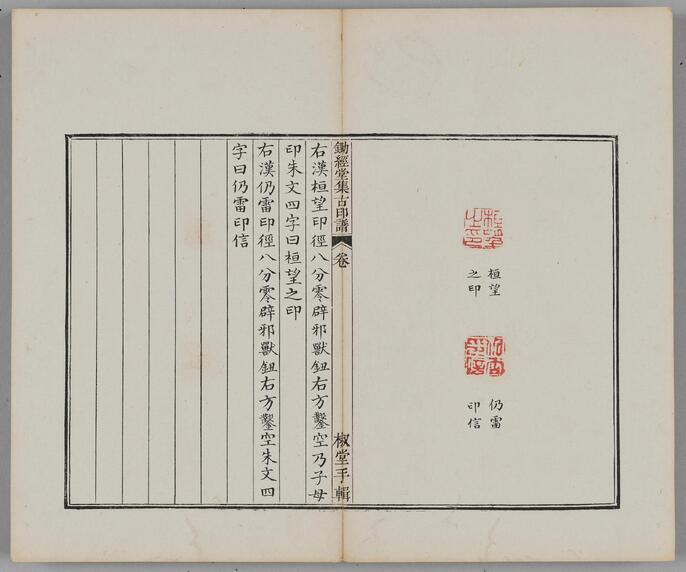 桓望
之印
仍雷
印信
鋤經堂集古印譜
卷
椒堂手輯
右漢桓望印徑八分零辟邪獸鈕右方鑿空乃子母
印朱文四字曰桓望之印
右漢仍雷印徑八分零辟邪獸鈕右方鑿空朱文四
字曰仍雷印信